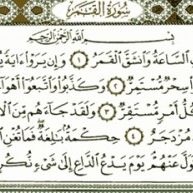 سُورَةُ القَمَرِ
بِسْمِ اللَّهِ الرَّحْمَٰنِ الرَّحِيمِ
السَّاعَةُ وَانشَقَّ الْقَمَرُ ١ وَإِن يَرَوْا ءَايَةً
سِحْرٌ مُّسْتَمِرٌّ ٢ وَكَذَّبُوا وَاتَّبَعُوا أَهْوَاءَ
أَمْرٍ مُّسْتَقِرٌّ ٣ وَلَقَدْ جَاءَهُم مِّنَ الْأَ
مُزْدَجَرٌ ٤ حِكْمَةٌ بَالِغَةٌ فَمَا تُغْنِ
عَنْهُمْ يَوْمَ يَدْعُ الدَّاعِ إِلَىٰ شَيْءٍ نُّكُرٍ